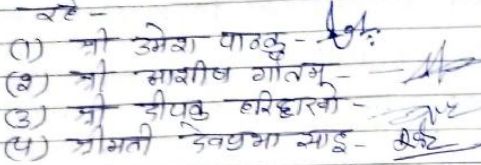 रहे -
(1) श्री उमेश पाठक -
(२) श्री आशीष गौतम -
(3) श्री दीपक हरिहारनो -
(4) श्रीमती देवप्रभा साहू -